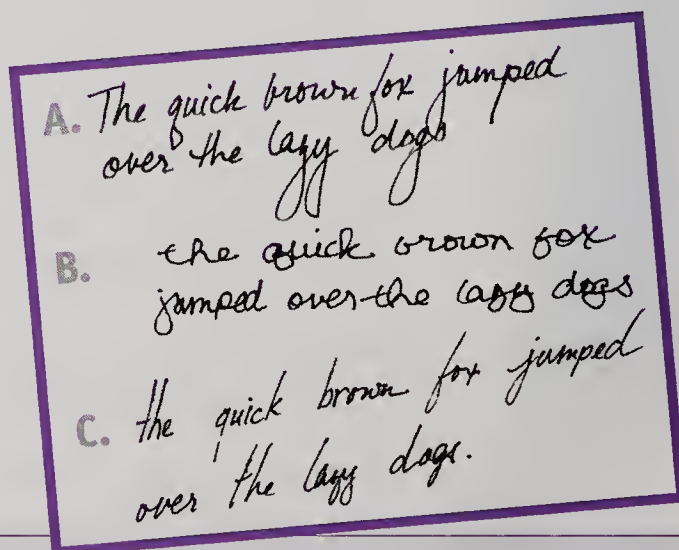 A. The quick brown fox jumped
over the lazy dogs
B. the quick brown fox
jumped over the lazy dogs
C. the quick brown fox jumped
over the lazy dogs.